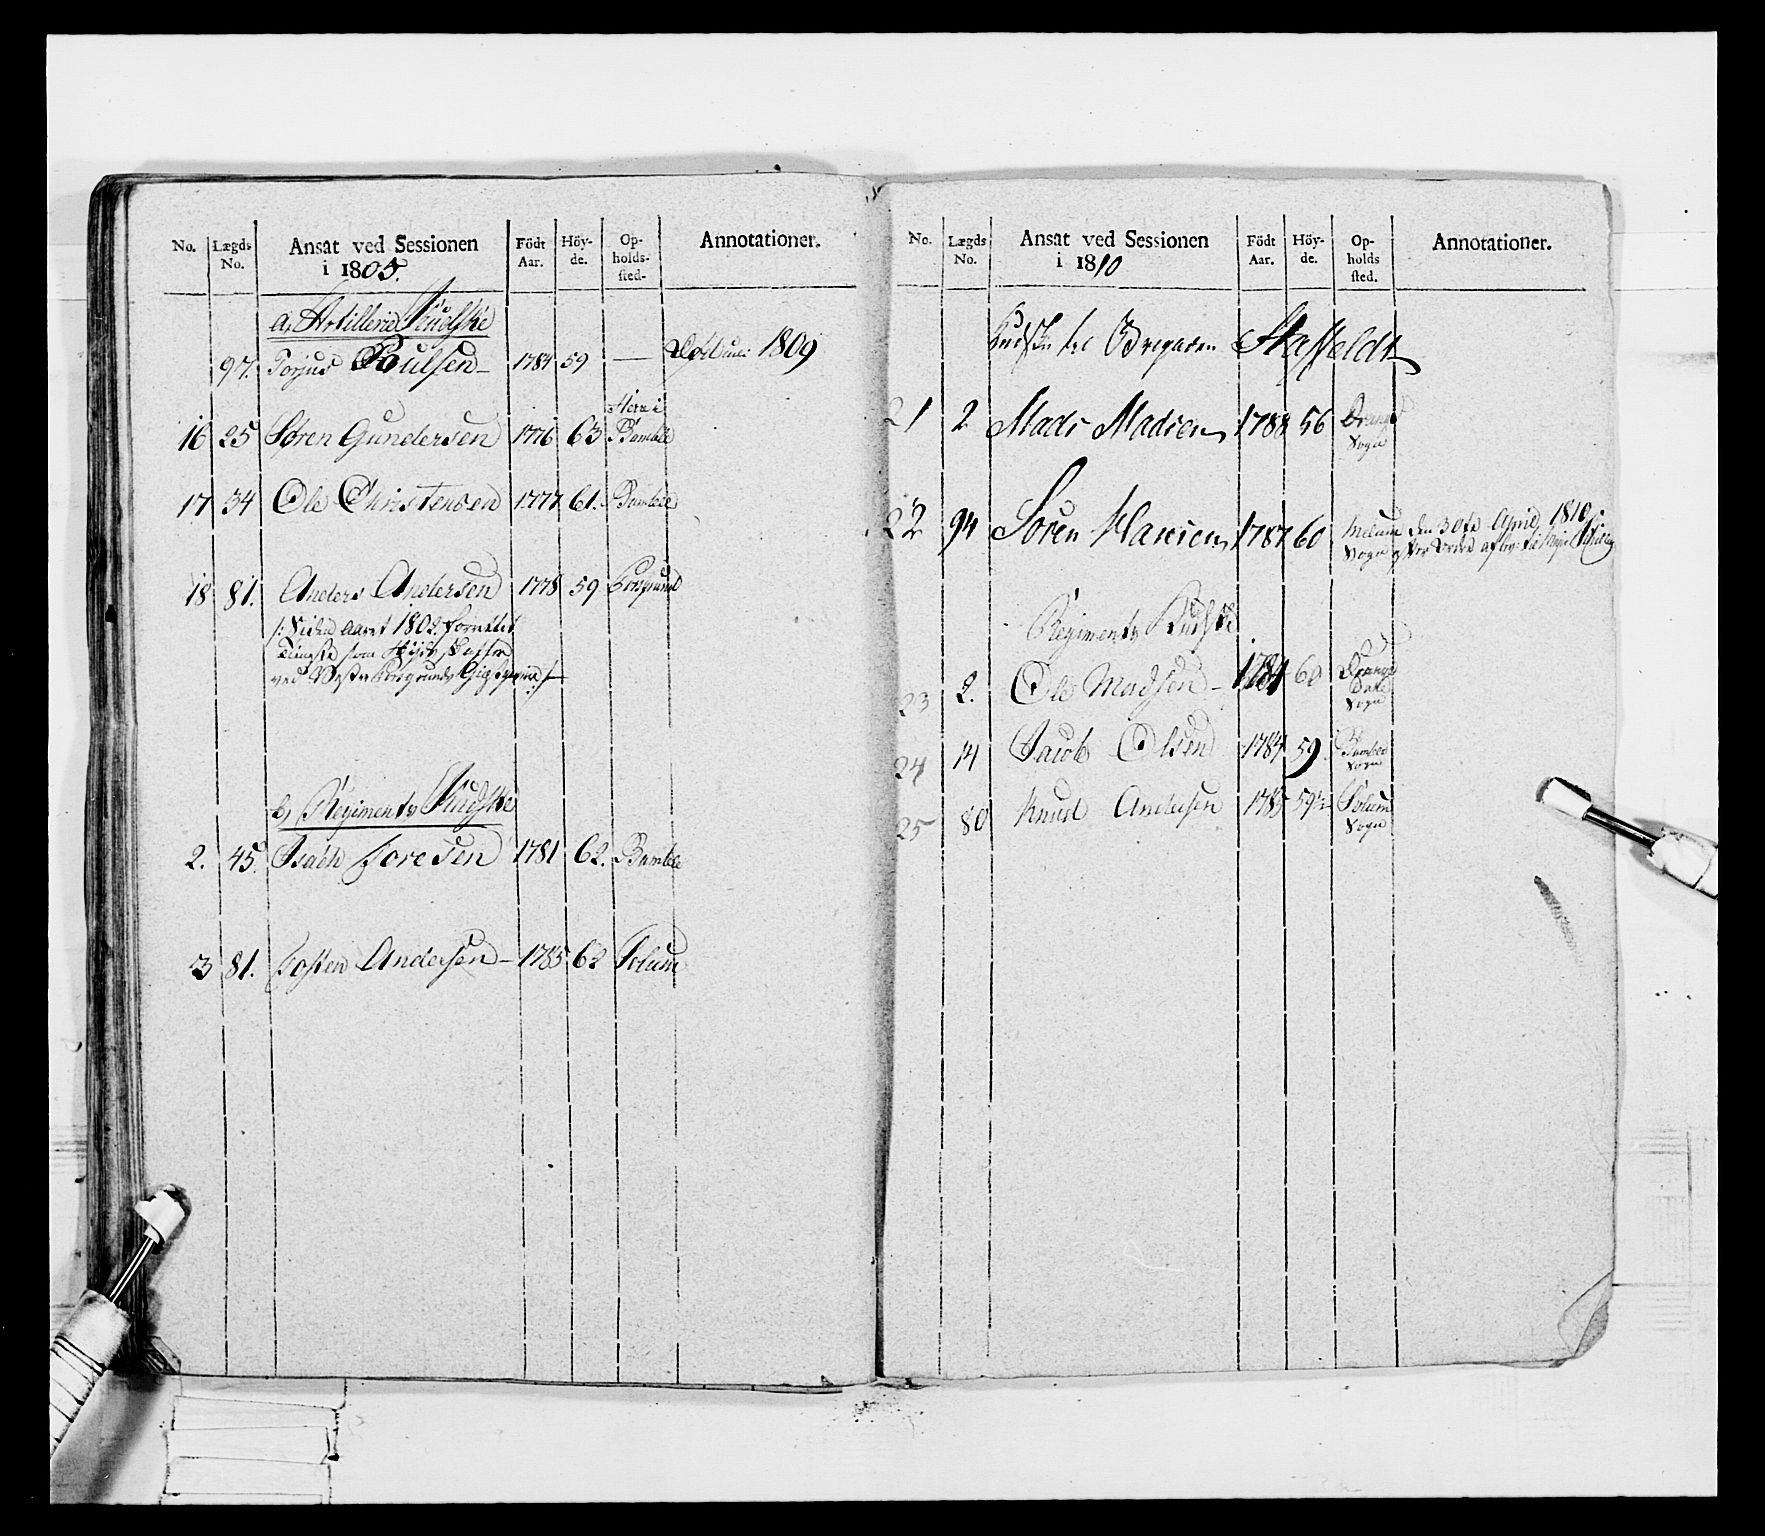 No. Lægds No. Ansat ved Sessionen i 1805. Födt Aar. Höy-de. Op-holds-sted. Annotationer.
a, Artillerie Kudske
97. Torjus Poulsen 1784 59 — 1809
16 25 Søren Gundersen 1776 63 Herre i Bamble
17 34 Ole Christensen 1777 61. Bamble
18 81. Anders Andersen 1778 59 Porsgrund
/: Siden Aaret 1802 forrettet
Tieneste som
ved Porsgrunds :/
b, Regiments Kudske
2. 45. Isach Toresen 1781 62. Bamble
3 81. Tosten Andersen 1785 62 Solum
No. Lægds No. Ansat ved Sessionen i 1810 Födt Aar. Höy-de. Op-holds sted. Annotationer.
Kudske til Brigaden Staffeldt
21 2 Mads Madsen 1788 56 Sogn
22 94 Søren Hansen 1787 60 Melum Sogn den 30te April 1810
Regiments Kudske
23 2. Ole Madsen 1784 60 Sogn
24 14 Jacob Olsen 1784 59 Bamble Sogn
25 80 Knud Andersen 1785 59½ Solum Sogn